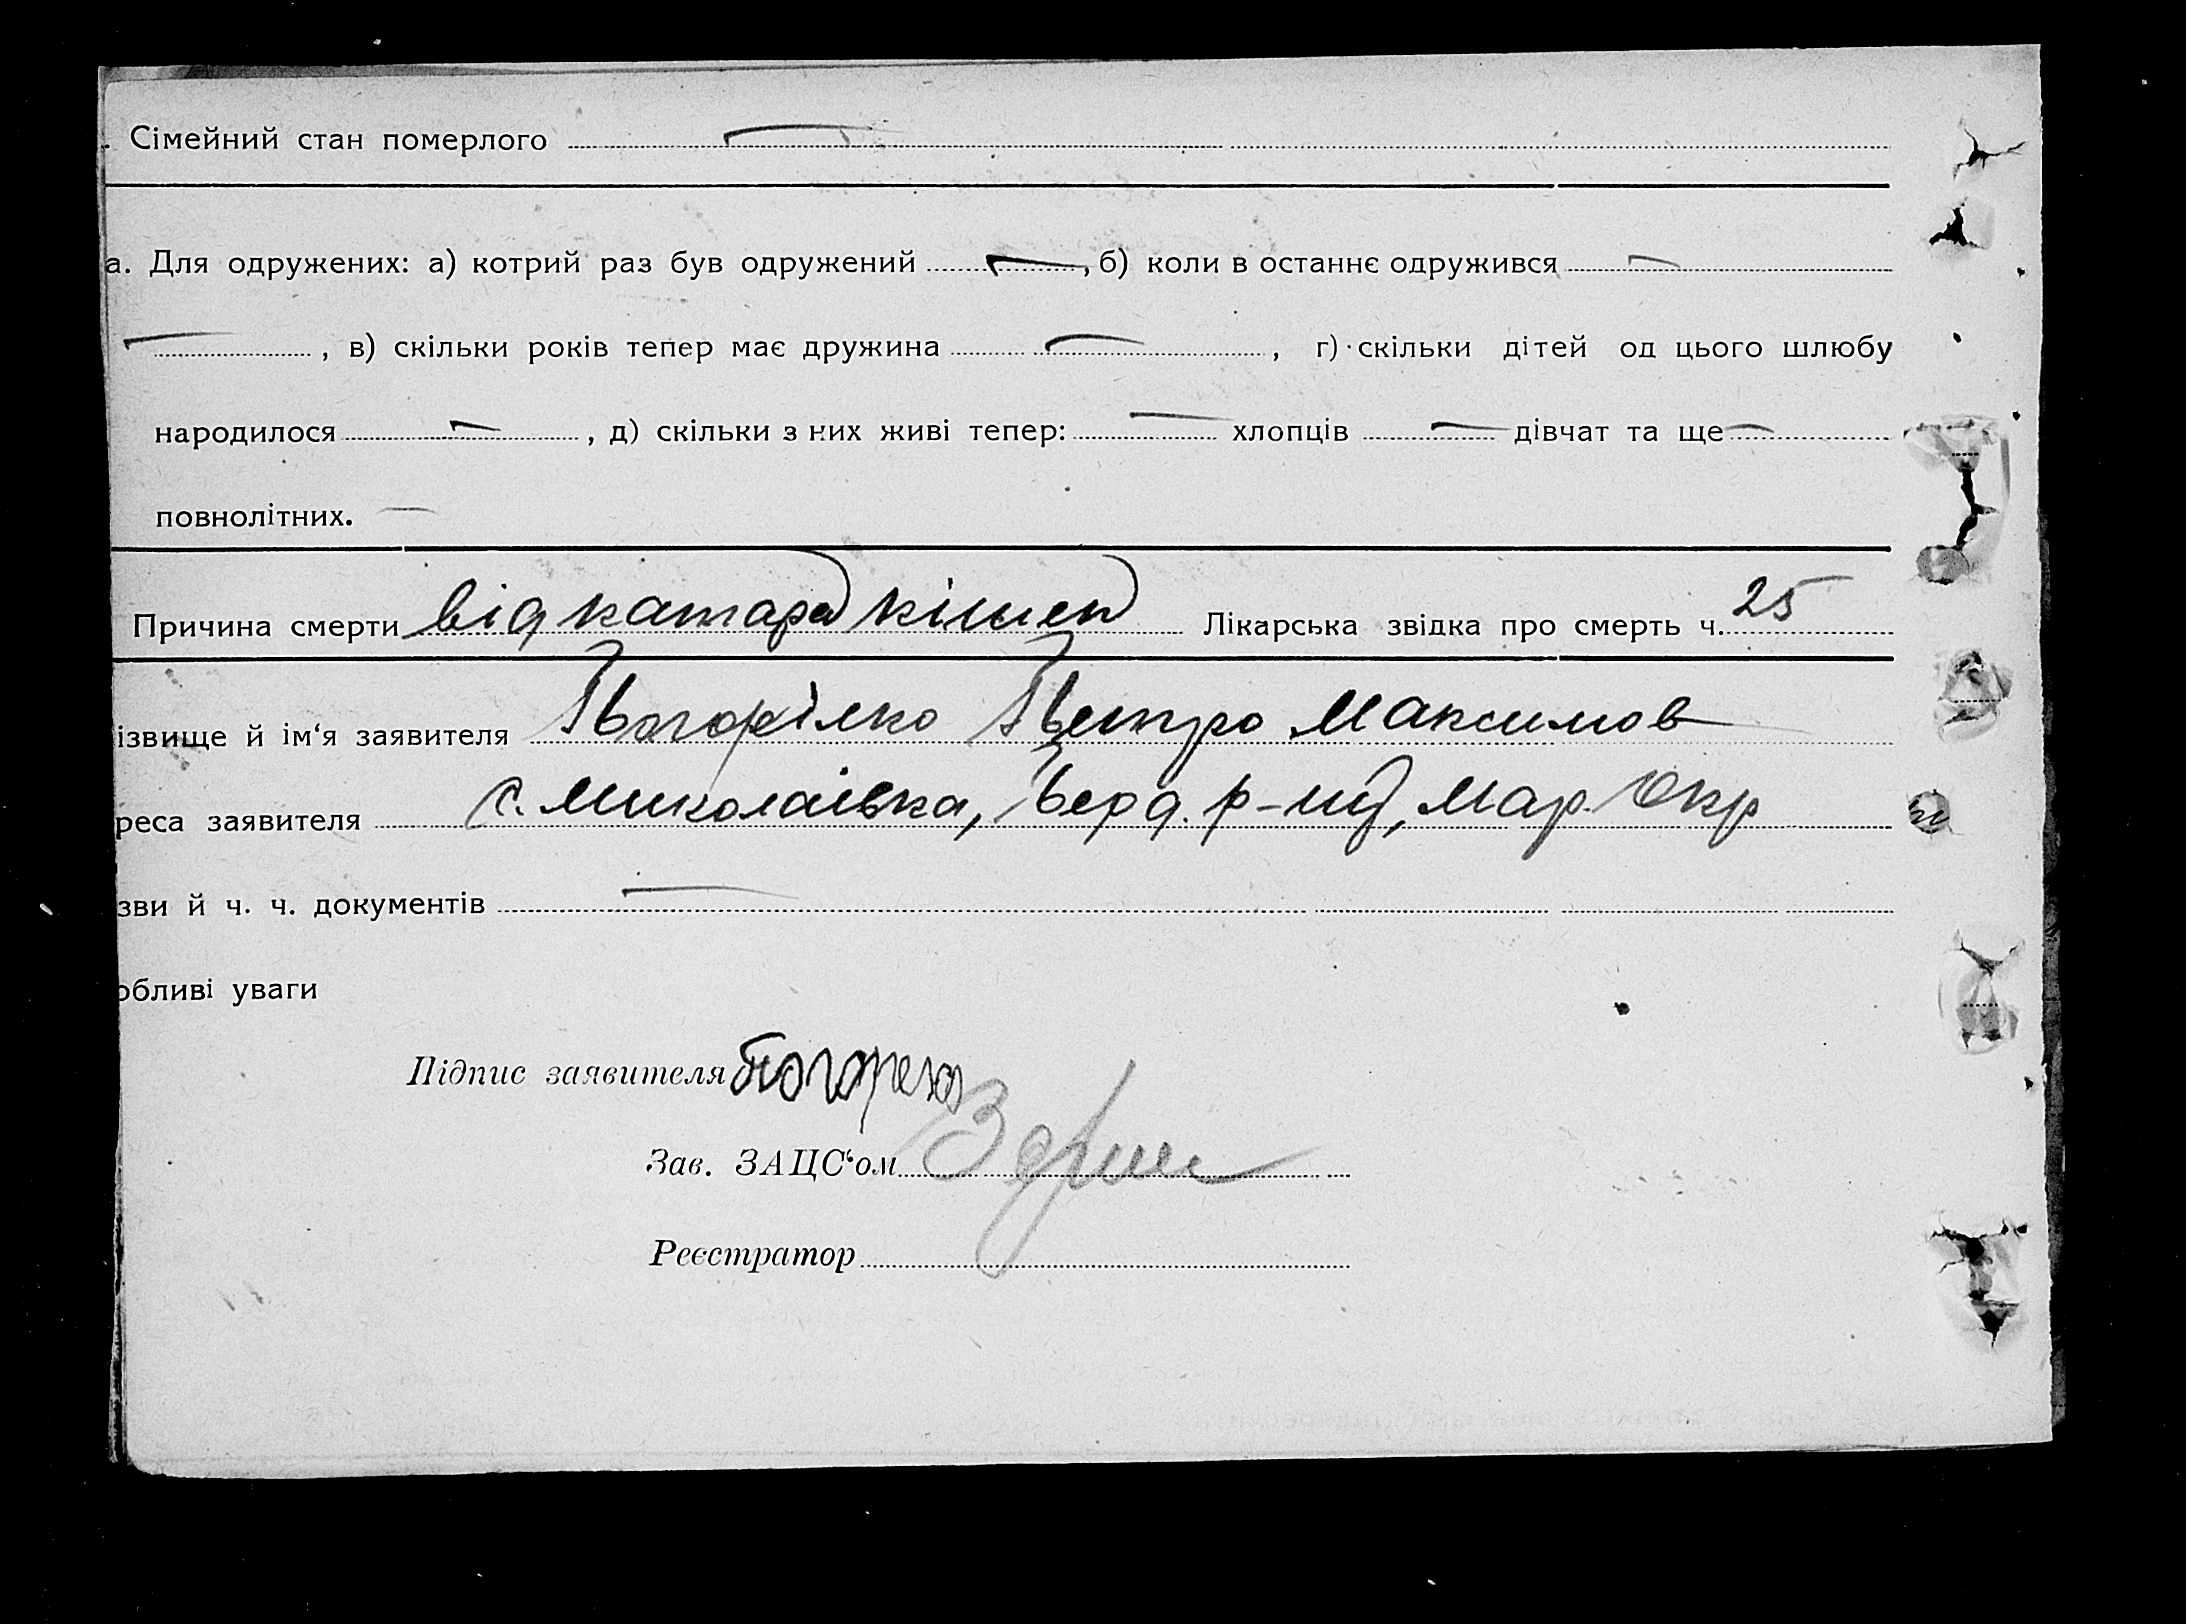 Сімейний стан померлого
а. Для одружених: а) котрий раз був одружений , б) коли в останнє одружився
, в) скільки років тепер має дружина , г) скільки дітей од цього шлюбу
народилося , д) скільки з них живі тепер: хлопців дівчат та ще
повнолітних.
Причина смерти від катара кішек Лікарська звідка про смерть ч. 25
ізвище й ім‘я заявителя Погорілко Петро Максимов
реса заявителя с. Миколаівка, Берд. р-ну, Мар Окр
зви й ч. ч. документів
обливі уваги
Підпис заявителя
Зав. ЗАЦС‘ом
Реєстратор